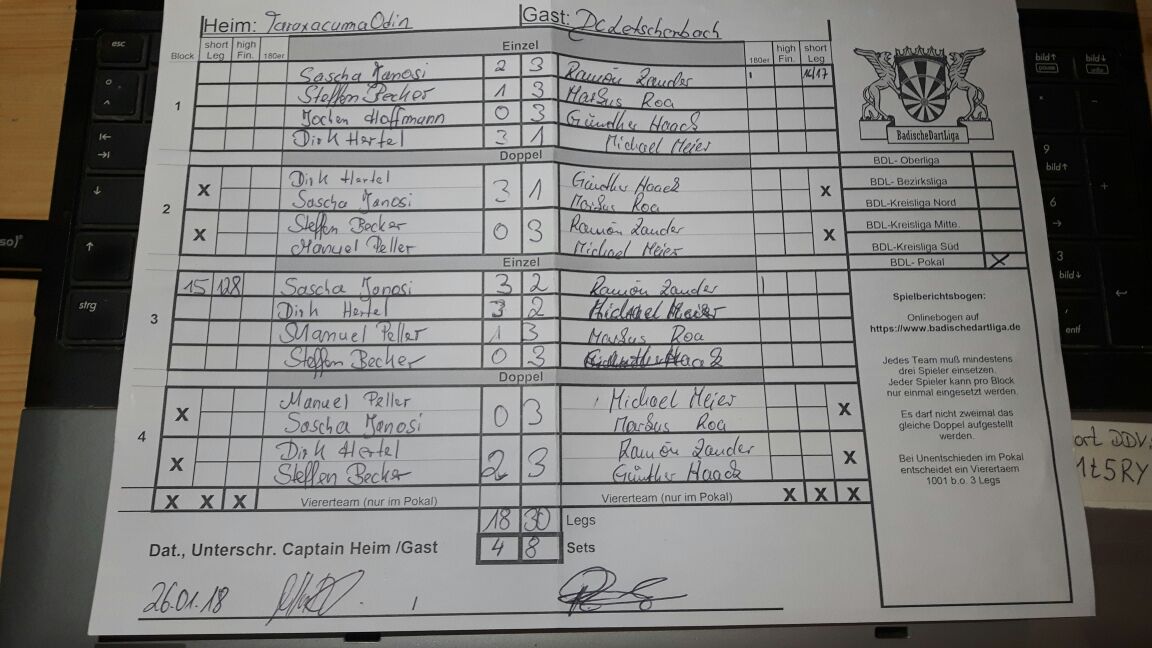 Heim: TaraxacumaOdin Gast: DC Letschenbach
Block short Leg high Fin. 180er Einzel 180er high Fin. short Leg
1
Sascha Janosi 2 3 Ramón Zander 16/17
Steffen Becker 1 3 Markus Roa
Jochen Hoffmann 0 3 Günther Haack
Dirk Hertel 3 1 Michael Meier
Doppel
2
X Dirk Hertel 3 1 Günther Haack X
Sascha Janosi Markus Roa
X Steffen Becker 0 3 Ramón Zander X
Manuel Peller Michael Meier
Einzel
3
15 128 Sascha Janosi 3 2 Ramón Zander
Dirk Hertel 3 2 Michael Meier
Manuel Peller 1 3 Markus Roa
Steffen Becker 0 3 Günther Haack
Doppel
4
X Manuel Peller 0 3 Michael Meier X
Sascha Janosi Markus Roa
X Dirk Hertel 2 3 Ramón Zander X
Steffen Becker Günther Haack
X X X Viererteam (nur im Pokal) Viererteam (nur im Pokal) X X X
18 30 Legs
4 8 Sets
Dat., Unterschr. Captain Heim /Gast
26.01.18
BadischeDartLiga
BDL- Oberliga
BDL- Bezirksliga
BDL-Kreisliga Nord
BDL-Kreisliga Mitte.
BDL-Kreisliga Süd
BDL- Pokal X
Spielberichtsbogen:
Onlinebogen auf
https://www.badischedartliga.de
Jedes Team muß mindestens
drei Spieler einsetzen.
Jeder Spieler kann pro Block
nur einmal eingesetzt werden.
Es darf nicht zweimal das
gleiche Doppel aufgestellt
werden.
Bei Unentschieden im Pokal
entscheidet ein Viererteam
1001 b.o. 3 Legs
esc
strg
bild↑
pause
bild↓
9
bild↑
6
3
bild↓
entf
ort DDV
1t5RY